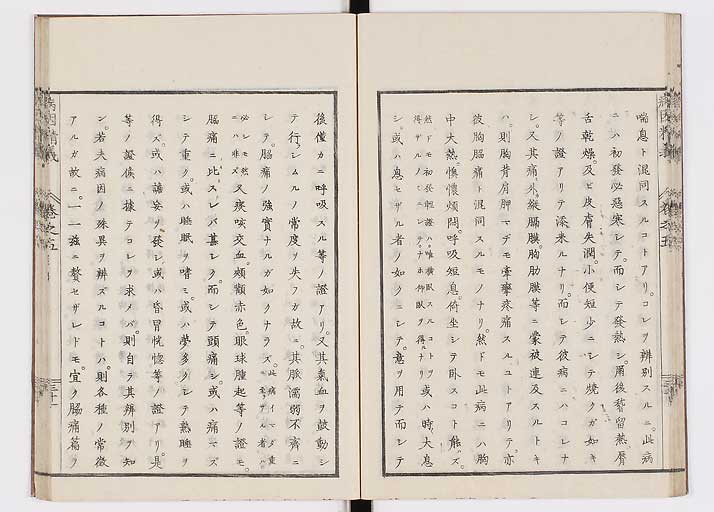 喘息ト混同スルコトアリ。コレヲ辨別スルニ。此病
ニハ初發必惡寒シテ。而シテ發熱シ。爾後稽留熱。脣
舌乾燥。及ビ皮膚失潤。小便短少ニシテ燒クガ如キ
等ノ證アリテ添来ルナリ。而シテ彼病ニハコレナ
シ。又其痛外。縱膈膜胸肋膜等ニ蒙被連及スルトキ
ハ。則胸背肩胛マデモ牽攣疼痛スルコトアリテ。亦
彼胸脇痛ト混同スルモノナリ。然ドモ此病ニハ胸
中大熱。懊憹煩悶。呼吸短息。倚坐シテ臥スコト能ズ。
然ドモ初發輕證ハ。唯橫臥スルコトヲ
得ザルノミニシテ。ナホ仰臥ヲ得ルナリ
或ハ時大息
シ。或ハ息セザル者ノ如クニシテ。意ヲ用テ而シテ
後僅カニ呼吸スル等ノ證アリ。又其氣血ヲ鼓動シ
テ行ラシムルノ常度ヲ失フガ故ニ。其脈濡弱不齊ニ
シテ。脇痛ノ強實ナルガ如クナラズ。
此病イマダ重
キニ至ラザル者ハ
必シモ然
ニハ非ズ
又疾咳交血。頰顴赤色。眼球腫起等ノ證モ。
脇痛ニ比スレバ甚シク。而シテ頭痛シ。或ハ痛マズ
シテ重ク。或ハ睡眠ヲ嗜ミ。或ハ夢多クシテ熟睡ヲ
得ズ。或ハ譫妄ヲ發シ。或ハ昏冒恍惚等ノ證アリ。是
等ノ證候ニ據テコレヲ求メバ。則自ラ其辨別ヲ知
ン。若夫病因ノ殊異ヲ辨ズルコトハ。則各種ノ常徵
アルガ故ニ。一一茲ニ贅セザレドモ。宜ク脇痛篇ヲ
病因精義
卷之五
三十一
病因精義
卷之五